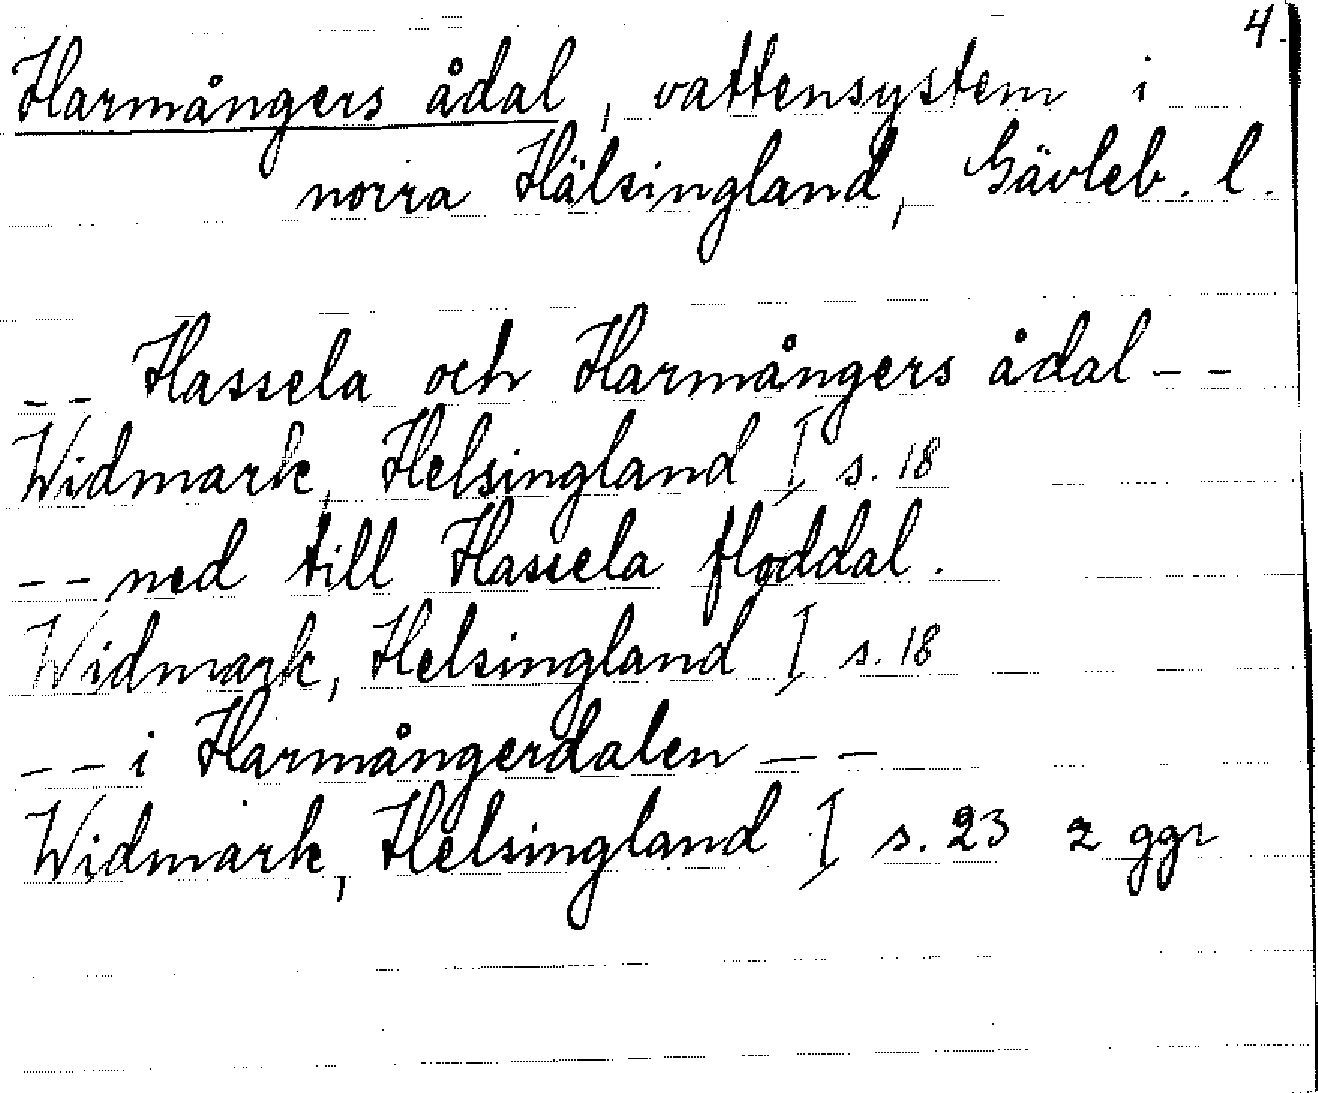 4.
Harmångers ådal, vattensystem i
norra Hälsingland, Gävleb. l.
-- Hassela och Harmångers ådal --
Widmark, Helsingland I s. 18
-- ned till Hassela floddal.
Widmark, Helsingland I s. 18
-- i Harmångerdalen --
Widmark, Helsingland I s. 23 2 ggr